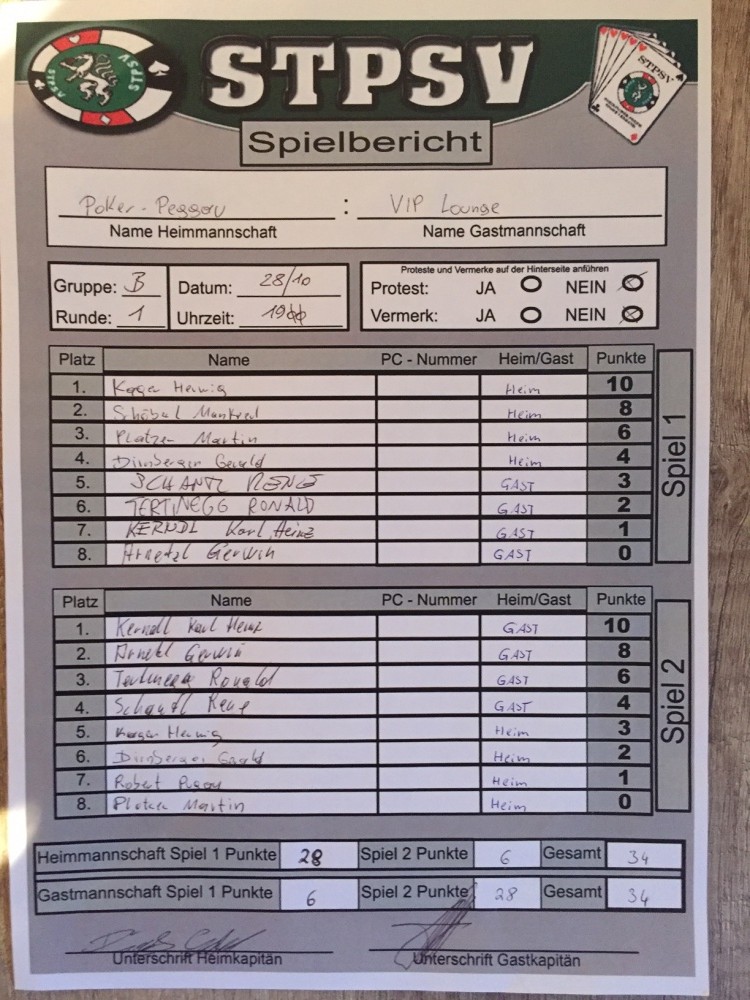 STPSV
STPSV
Spielbericht
Poker-Peggau : VIP Lounge
Name Heimmannschaft Name Gastmannschaft
Proteste und Vermerke auf der Hinterseite anführen
Gruppe: B Datum: 28/10 Protest: JA NEIN
Runde: 1 Uhrzeit: 19 Vermerk: JA NEIN
Platz Name PC - Nummer Heim/Gast Punkte
1. Herwig Heim 10
2. Manfred Heim 8
3. Platzer Martin Heim 6
4. Dirnberger Gerald Heim 4
5. SCHANTL RENE GAST 3
6. TERTINEGG RONALD GAST 2
7. KERNDL Karl Heinz GAST 1
8. Arnetzl Gerwin GAST 0
Spiel 1
Platz Name PC - Nummer Heim/Gast Punkte
1. Kerndl Karl Heinz GAST 10
2. Arnetzl Gerwin GAST 8
3. Tertinegg Ronald GAST 6
4. Schantl Rene GAST 4
5. Herwig Heim 3
6. Dirnberger Gerald Heim 2
7. Robert Heim 1
8. Platzer Martin Heim 0
Spiel 2
Heimmannschaft Spiel 1 Punkte 28 Spiel 2 Punkte 6 Gesamt 34
Gastmannschaft Spiel 1 Punkte 6 Spiel 2 Punkte 28 Gesamt 34
Unterschrift Heimkapitän Unterschrift Gastkapitän